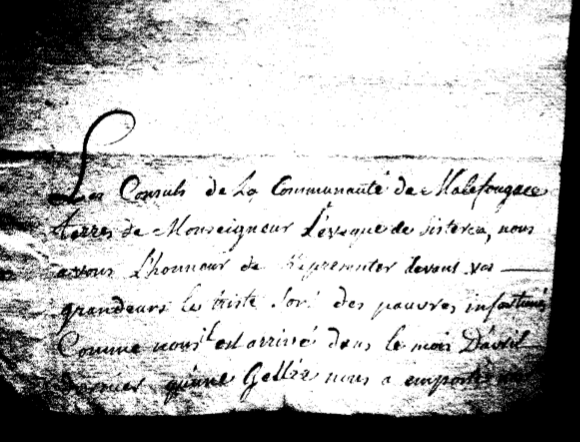 Les Consuls de La Communauté de Malefougace
terres de Monseigneur L'évêque de Sisteron, nous
avons L'honneur de Représenter devant vos
grandeurs le triste sort des pauvres infortunés
Comme nous il est arrivé dans le mois D'avril
dernier qu'une Gellée nous a emporté